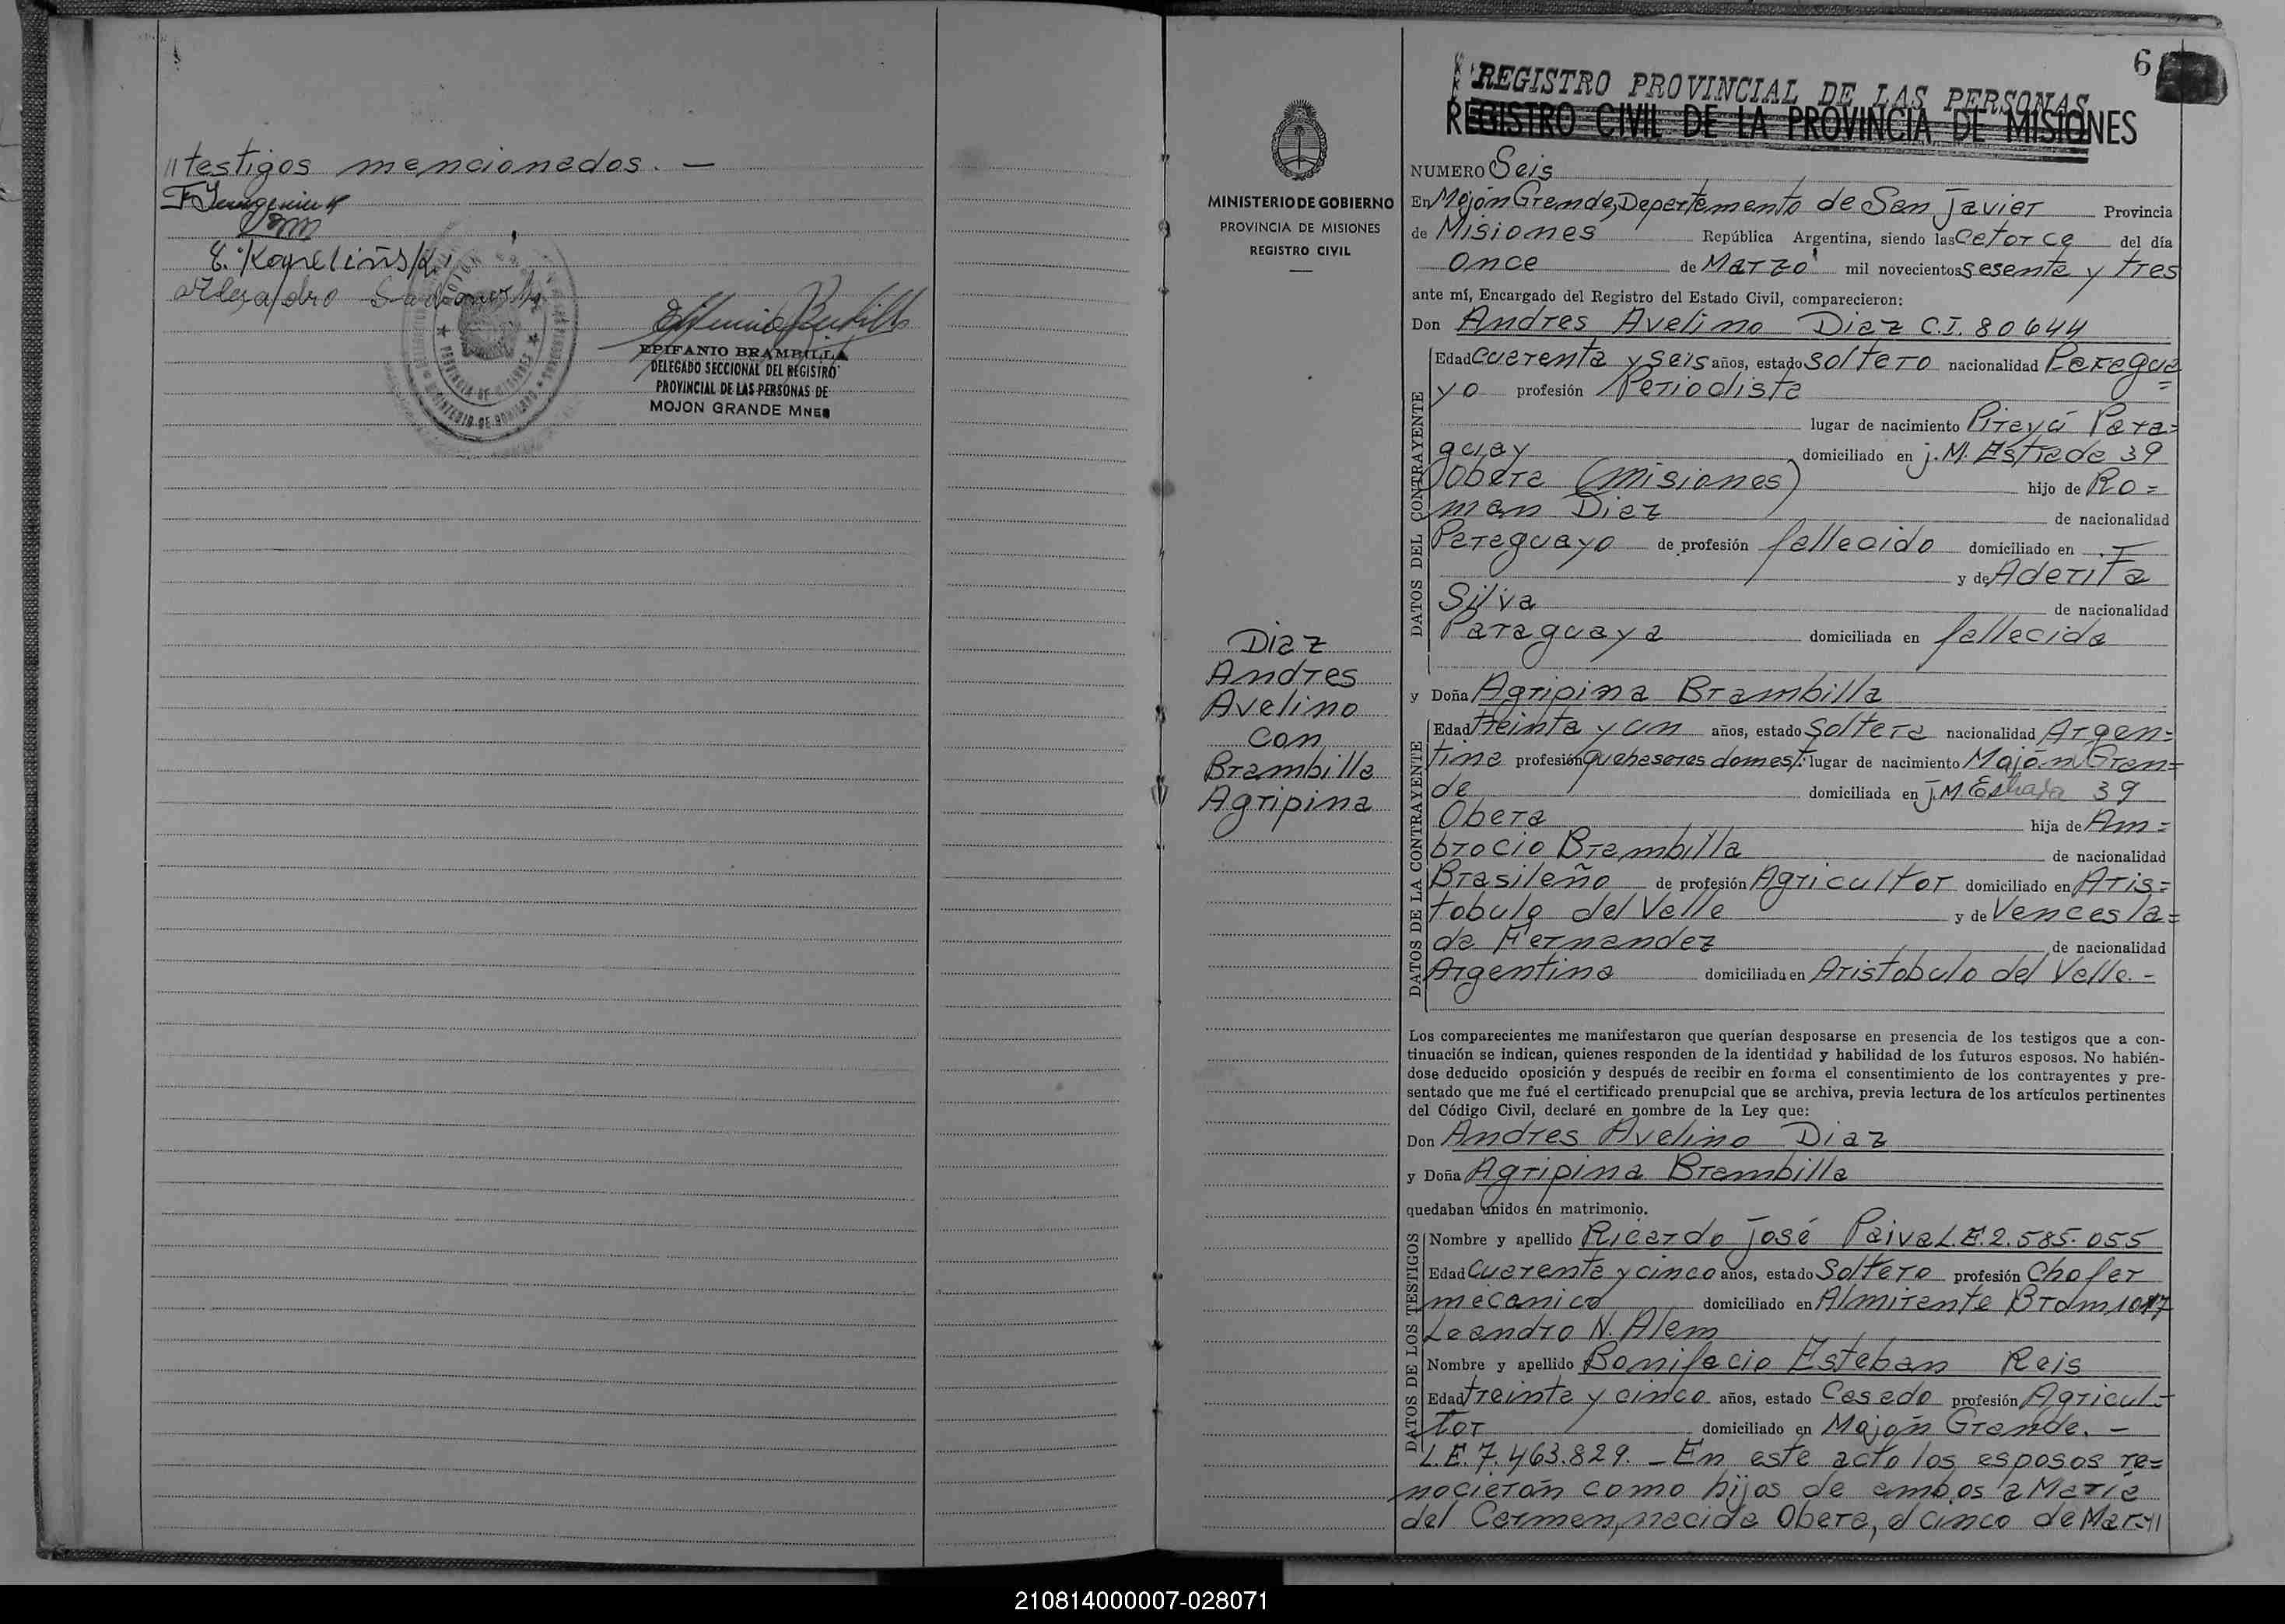 // testigos mencionados. —
EPIFANIO BRAMBILLA
DELEGADO SECCIONAL DEL REGISTRO
PROVINCIAL DE LAS PERSONAS DE
MOJON GRANDE MNES
6
REGISTRO PROVINCIAL DE LAS PERSONAS
REGISTRO CIVIL DE LA PROVINCIA DE MISIONES
MINISTERIO DE GOBIERNO
PROVINCIA DE MISIONES
REGISTRO CIVIL
Diaz
Andres
Avelino
con
Brambilla
Agripina
NUMERO Seis
En Mojón Grande, Departamento de San Javier Provincia
de Misiones República Argentina, siendo las catorce del día
once de Marzo mil novecientos sesenta y tres
ante mí, Encargado del Registro del Estado Civil, comparecieron:
Don Andres Avelino Diaz C.I. 80644
DATOS DEL CONTRAYENTE
Edad cuarenta y seis años, estado soltero nacionalidad Paragua=
yo profesión Periodista
lugar de nacimiento Pirayú Para=
guay domiciliado en J.M. Estrada 39
Obera (Misiones) hijo de Ro=
man Diaz de nacionalidad
Paraguayo de profesión fallecido domiciliado en
y de Aderita
Silva de nacionalidad
Paraguaya domiciliada en fallecida
y Doña Agripina Brambilla
DATOS DE LA CONTRAYENTE
Edad treinta y un años, estado soltera nacionalidad Argen=
tina profesión quehaseres domest. lugar de nacimiento Mojón Gran=
de domiciliada en J.M. Estrada 39
Obera hija de Am=
brocio Brambilla de nacionalidad
Brasileño de profesión Agricultor domiciliado en Aris=
tobulo del Valle y de Vencesla=
da Fernandez de nacionalidad
Argentina domiciliada en Aristobulo del Valle.-
Los comparecientes me manifestaron que querían desposarse en presencia de los testigos que a con-
tinuación se indican, quienes responden de la identidad y habilidad de los futuros esposos. No habién-
dose deducido oposición y después de recibir en forma el consentimiento de los contrayentes y pre-
sentado que me fué el certificado prenupcial que se archiva, previa lectura de los artículos pertinentes
del Código Civil, declaré en nombre de la Ley que:
Don Andres Avelino Diaz
y Doña Agripina Brambilla
quedaban unidos en matrimonio.
DATOS DE LOS TESTIGOS
Nombre y apellido Ricardo José Paiva L.E. 2.585.055
Edad cuarenta y cinco años, estado Soltero profesión Chofer
mecanico domiciliado en Almirante Brown 1017
Leandro N. Alem
Nombre y apellido Bonifacio Esteban Reis
Edad treinta y cinco años, estado Casado profesión Agricul=
tor domiciliado en Mojón Grande. —
L.E. 7.463.829. — En este acto los esposos re=
nocierón como hijos de ambos a Maria
del Carmen, nacida Obera, el cinco de Mar=//
210814000007-028071